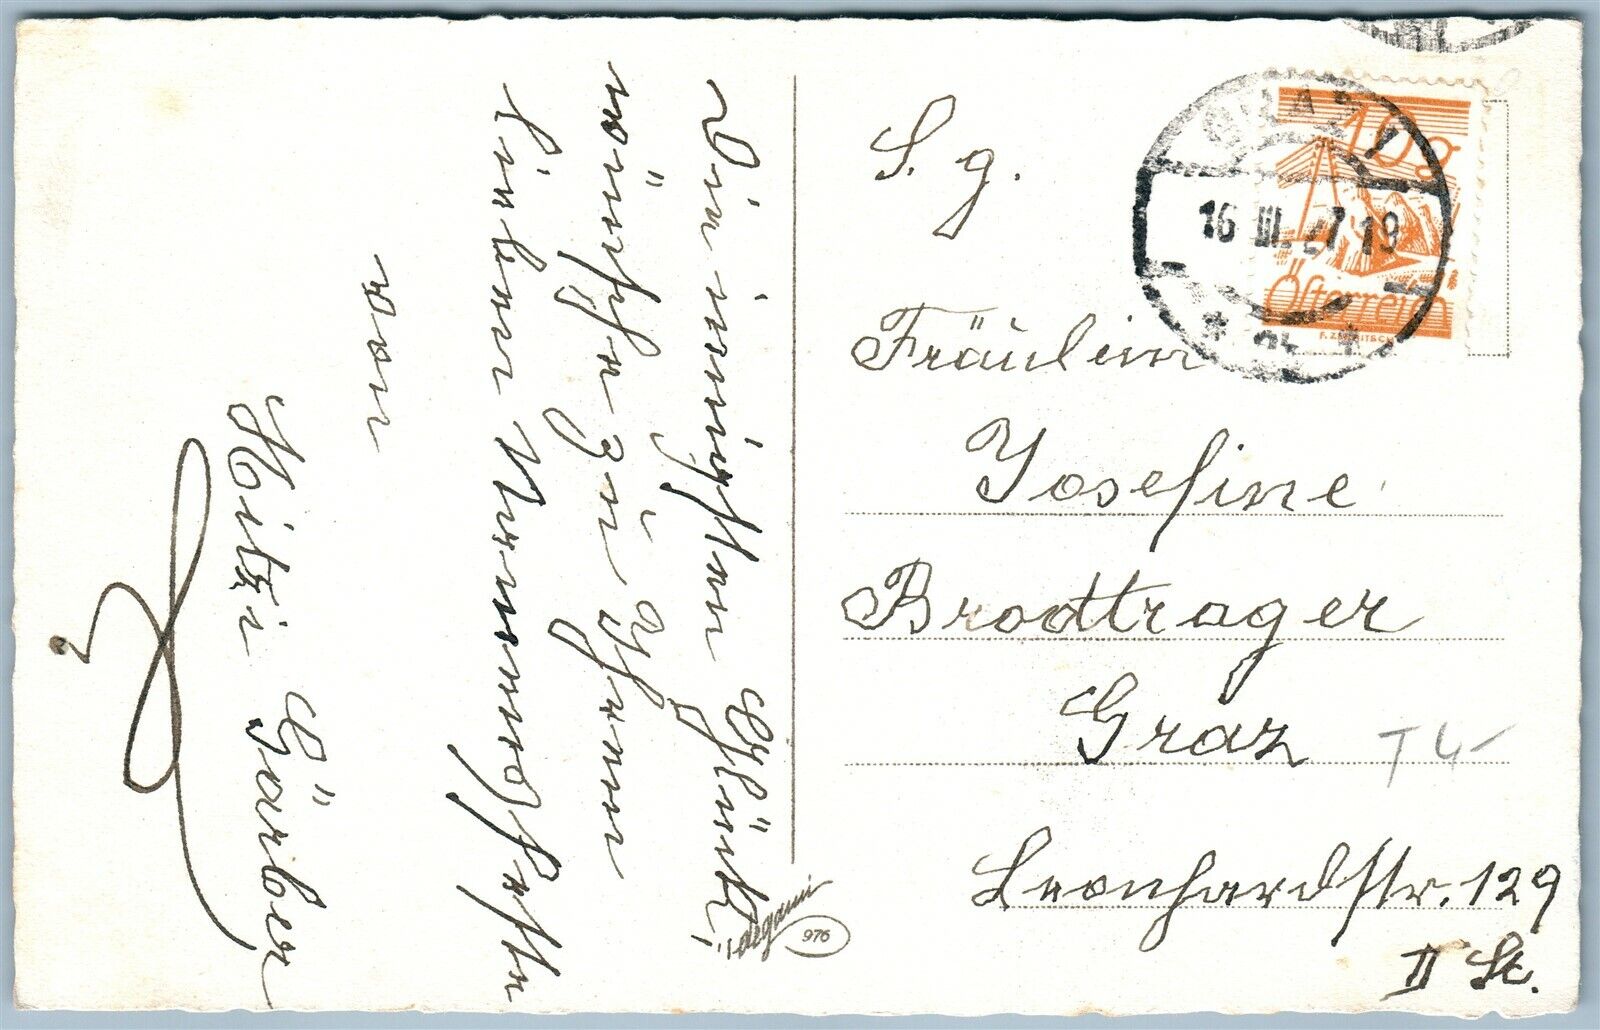 Die innigsten Glück-
wünsche zu Ihrem
lieben Namensfeste
von
Mitzi Gärber
"degami
976
GRAZ 1
16 III. 27 19
* *
10g
Österreich
S. g.
Fräulein
Josefine
Brodtrager
Graz
T 4-
Leonhardstr. 129
II St.